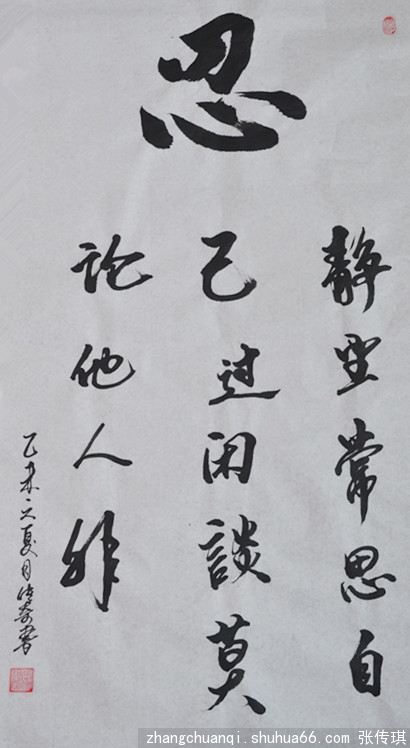 思
静坐常思自
己过闲談莫
论他人非
乙未之夏月传奇書
zhangchuanqi.shuhua66.com 张传琪